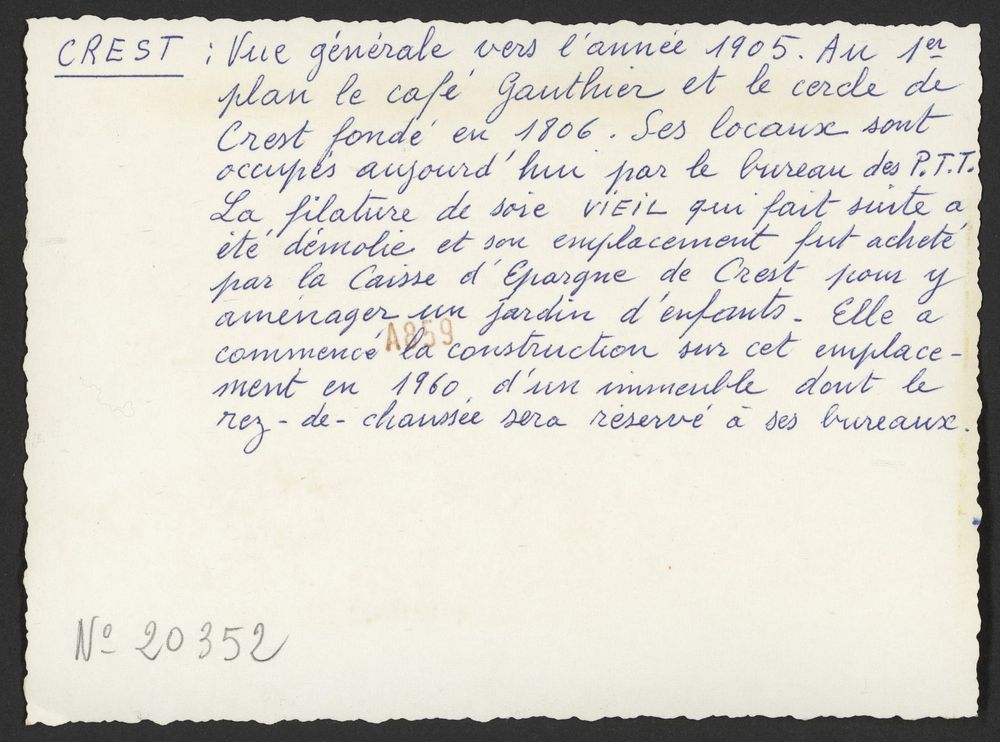 CREST : Vue générale vers l'année 1905. Au 1er
plan le café Gauthier et le cercle de
Crest fondé en 1806. Ses locaux sont
occupés aujourd'hui par le bureau des P.T.T.
La filature de soie VIEIL qui fait suite a
été démolie et son emplacement fut acheté
par la Caisse d'Epargne de Crest pour y
aménager un jardin d'enfants. Elle a
commencé la construction sur cet emplace-
A859
ment en 1960 d'un immeuble dont le
rez-de-chaussée sera réservé à ses bureaux.
No 20352